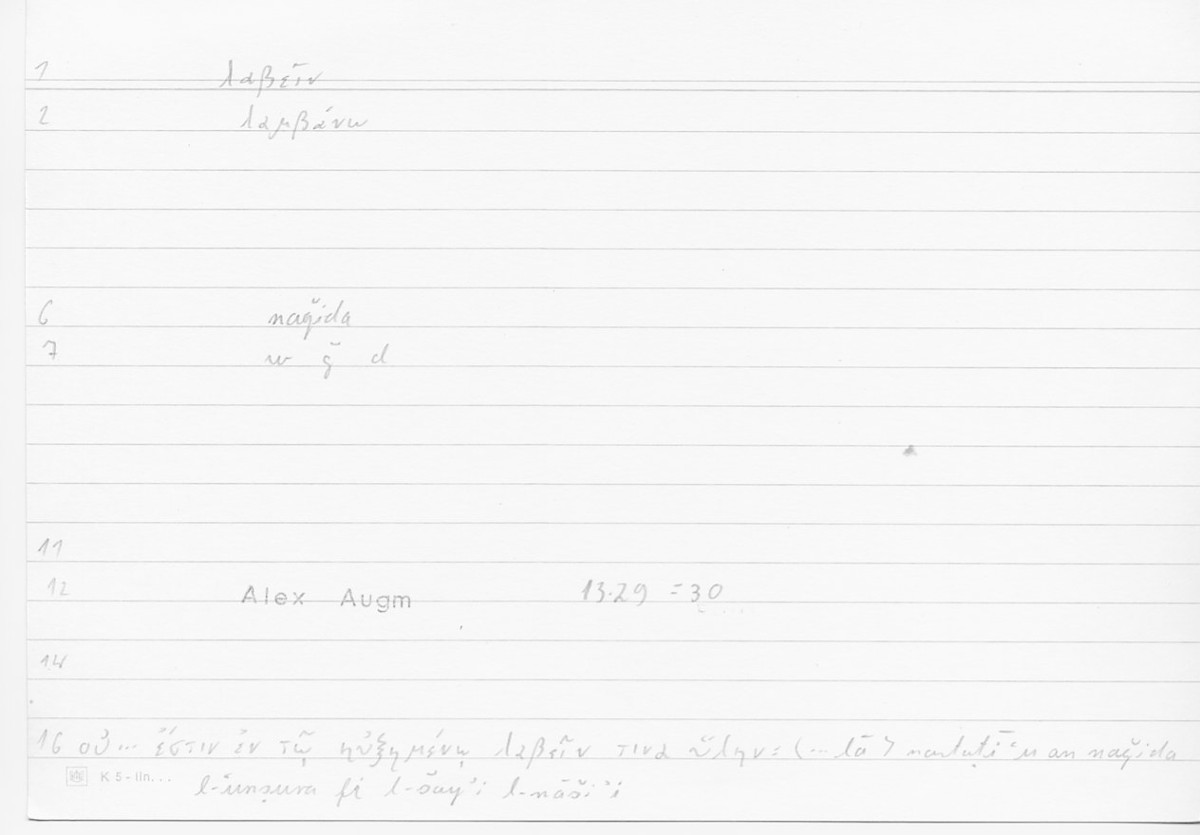 1 λαβεῖν
2 λαμβάνω
6 naǧida
7 w ǧ d
11
12 Alex Augm 13.29 = 30
14
16 οὐ... ἔστιν ἐν τῷ ηὐξημένῳ λαβεῖν τινα ὕλην = (... lā) nastaṭīʿu an naǧida
K 5 - lin...
l-ʿunṣura fī l-šayʾi l-nāšiʾi